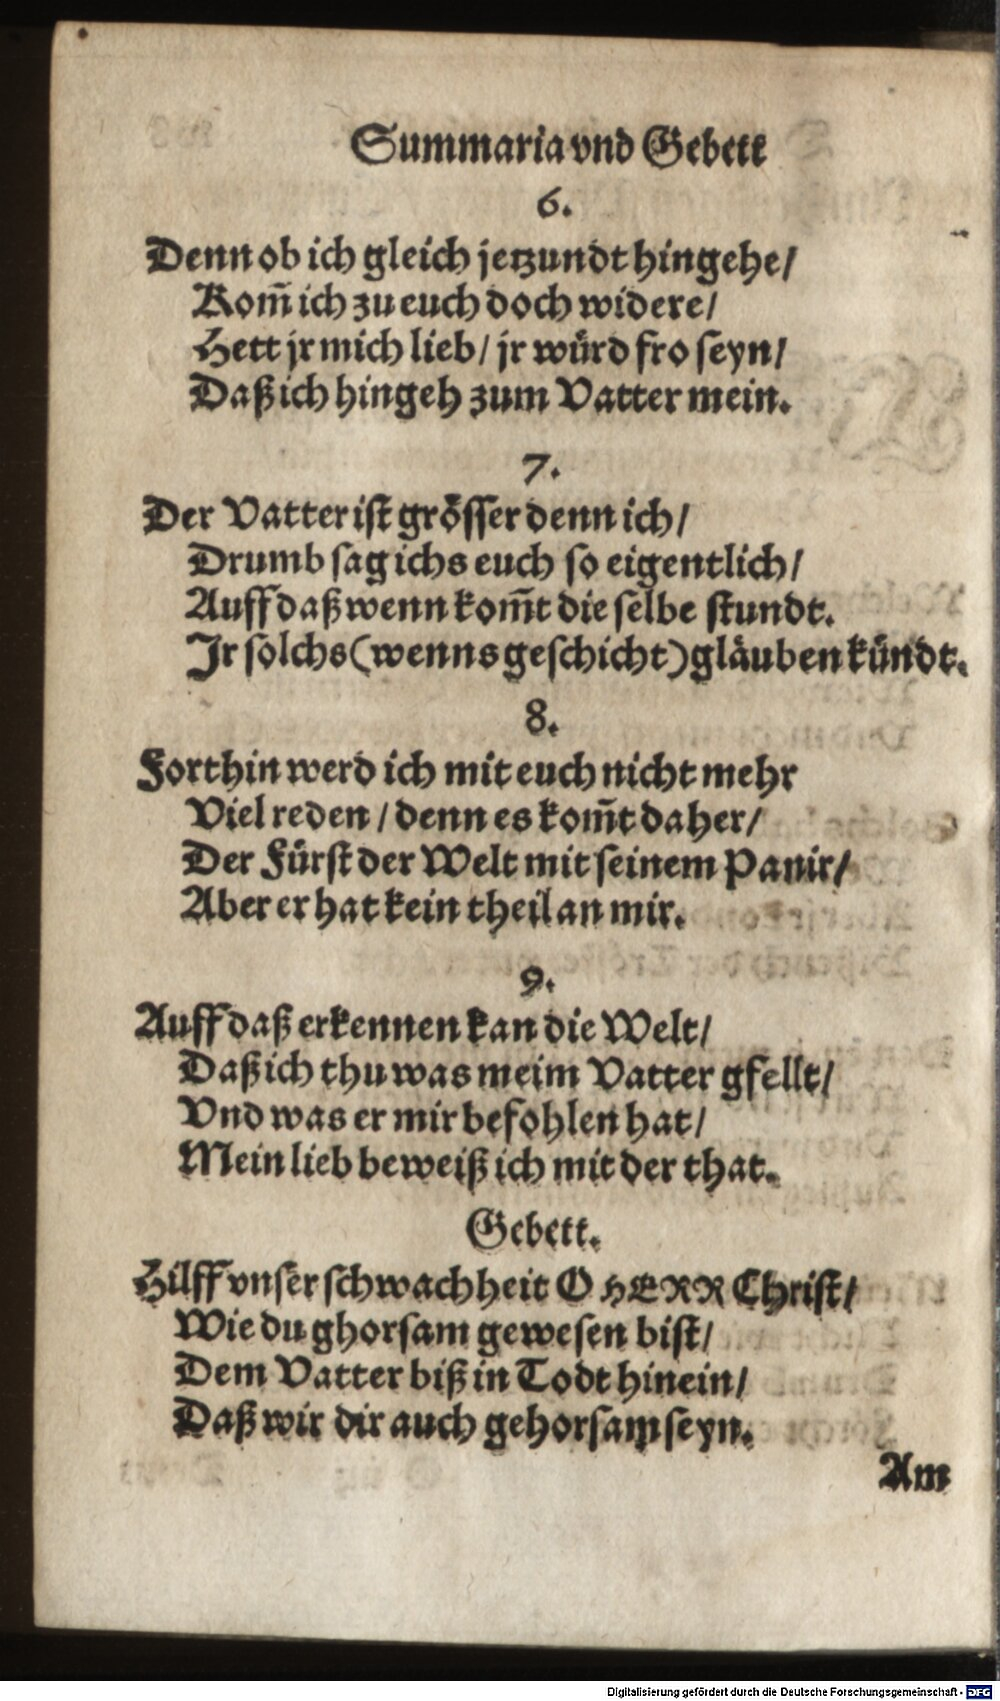 Summaria vnd Gebett
6.
Denn ob ich gleich jetzundt hingehe/
Kom̃ ich zu euch doch widere/
Hett jr mich lieb/ jr würd fro seyn/
Daß ich hingeh zum Vatter mein.
7.
Der Vatter ist grösser denn ich/
Drumb sag ichs euch so eigentlich/
Auff daß wenn kom̃t die selbe stundt.
Jr solchs (wenns geschicht) gläuben kündt.
8.
Forthin werd ich mit euch nicht mehr
Viel reden/ denn es kom̃t daher/
Der Fürst der Welt mit seinem Panir/
Aber er hat kein theil an mir.
9.
Auff daß erkennen kan die Welt/
Daß ich thu was meim Vatter gfellt/
Vnd was er mir befohlen hat/
Mein lieb beweiß ich mit der that.
Gebett.
Hilff vnser schwachheit O HERR Christ/
Wie du ghorsam gewesen bist/
Dem Vatter biß in Todt hinein/
Daß wir dir auch gehorsam seyn.
Am
Digitalisierung gefördert durch die Deutsche Forschungsgemeinschaft - DFG